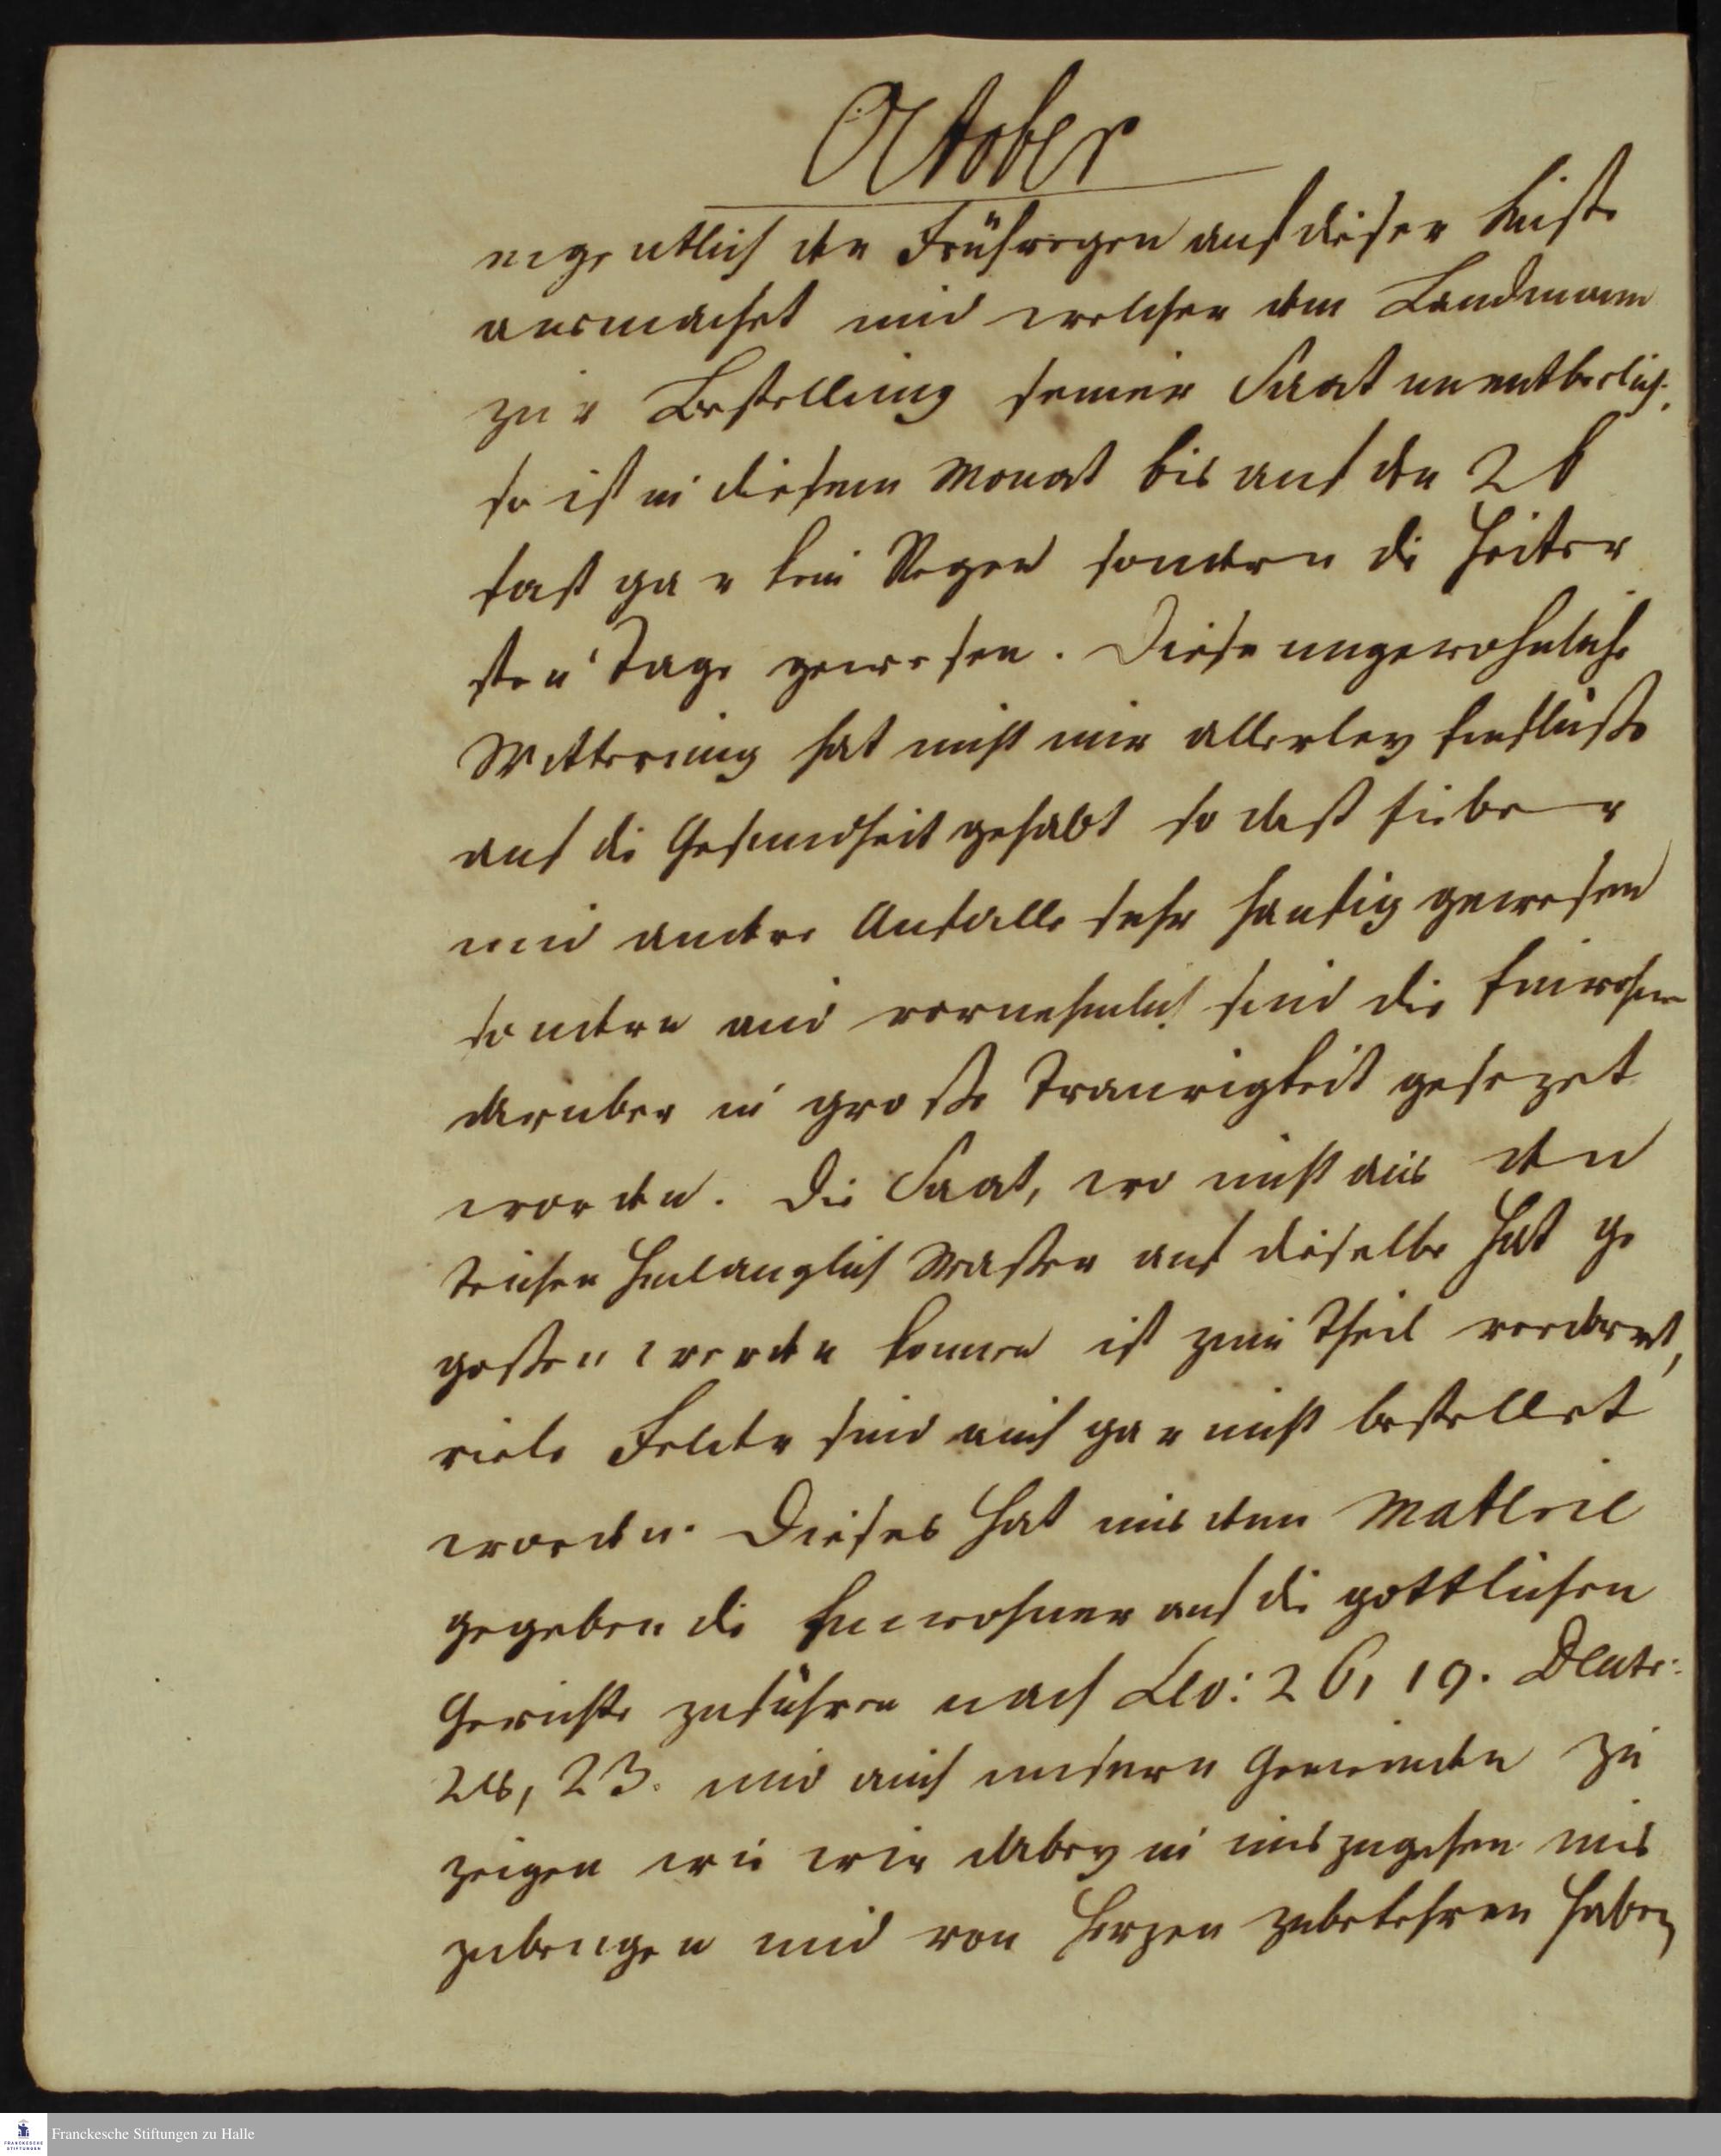 October
eigentlich den Frühregen auf dieser Küste
ausmachet und welcher dem Landmann
zur Bestellung seiner Saat unentberlich.
so ist in diesem Monat bis auf den 26
fast gar kein Regen sondern die heiter
sten Tage gewesen. Diese ungewohnliche
Witterung hat nicht nur allerley Einfluße
auf die Gesundheit gehabt so daß fieber
und andere Anfalle sehr haufig gewesen
sondern und vornehmlich sind die Einwohner
daruber in große Traurigkeit gesezet
worden. Die Saat, wo nicht aus den
Teichen hinlanglich Waßer auf dieselbe hat ge
goßen werden konnen ist zum Theil verdorrt,
viele Felder sind auch gar nicht bestellet
worden. Dieses hat uns denn Materie
gegeben die Einwohner auf die gottlichen
Gerichte zuführen nach Lev: 26, 19. Deutr:
28, 23. und auch unsern Gemeinden zu
zeigen wie wir dabey in uns zugehen uns
zubeugen und von Herzen zubekehren haben
Franckesche Stiftungen zu Halle
FRANCKESCHE
STIFTUNGEN